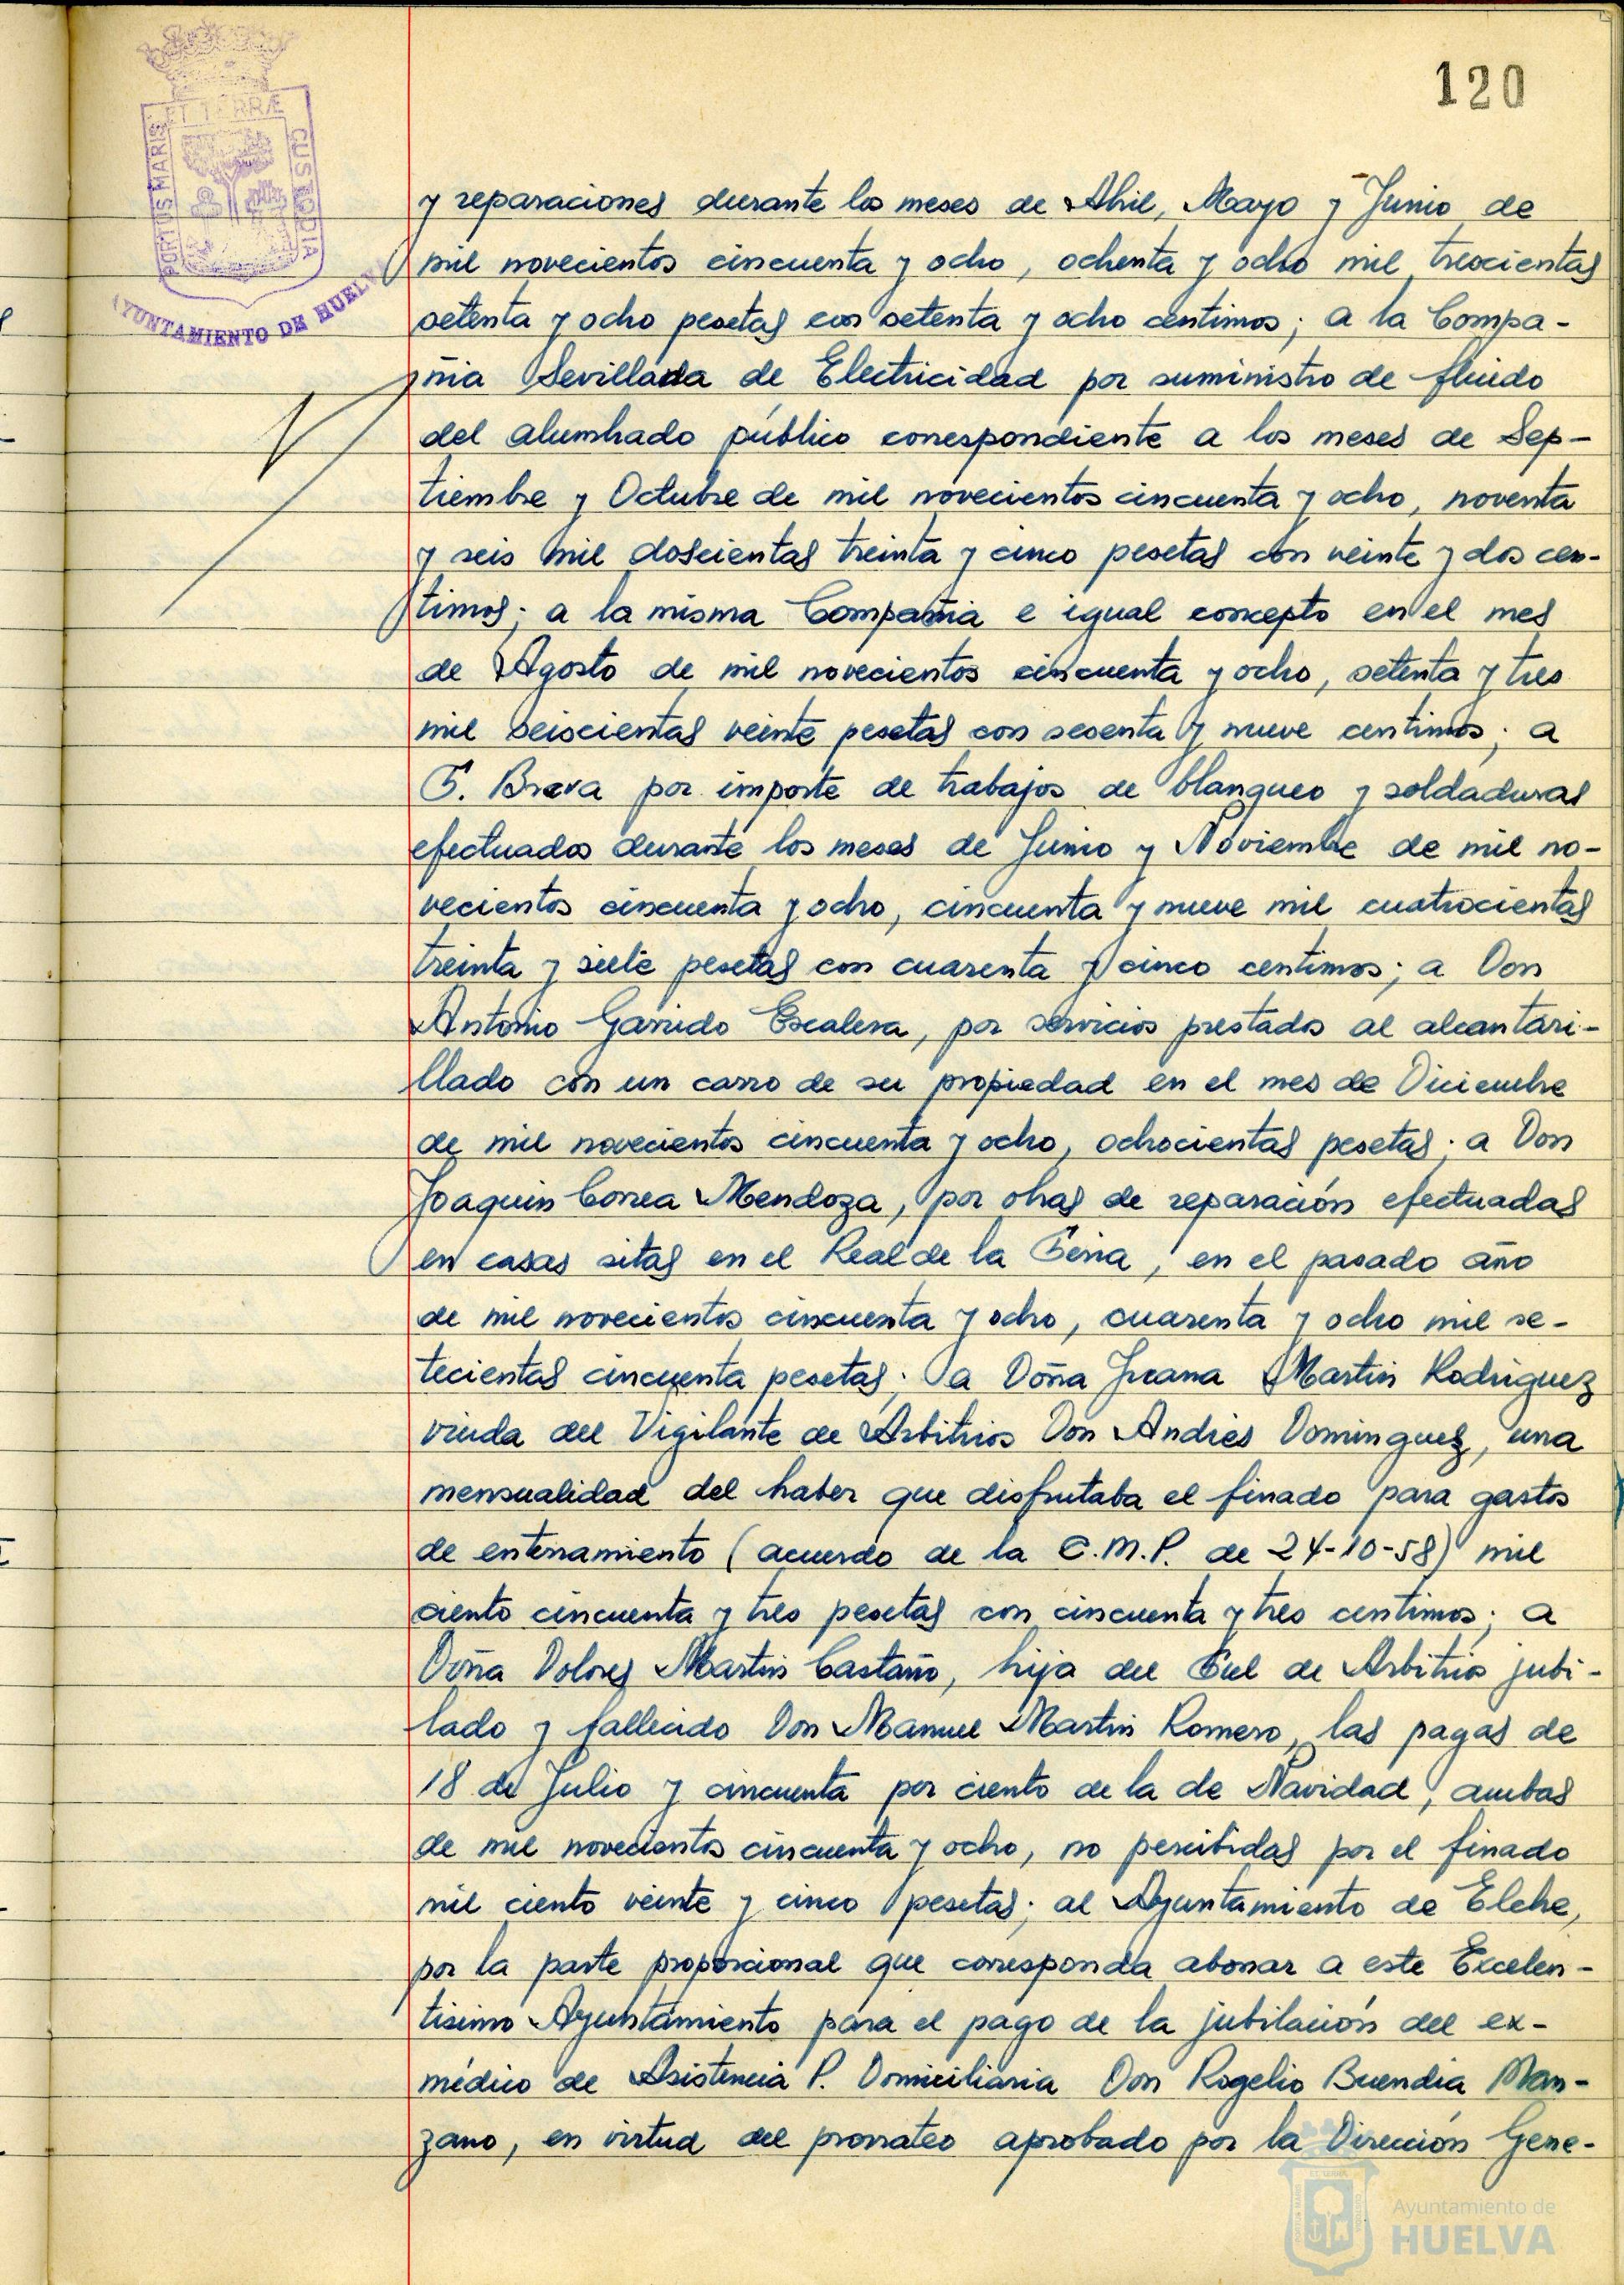 120
ET TERRÆ
PORTUS MARIS
CUSTODIA
AYUNTAMIENTO DE HUELVA
y reparaciones durante los meses de Abril, Mayo y Junio de
mil novecientos cincuenta y ocho, ochenta y ocho mil trescientas
setenta y ocho pesetas con setenta y ocho centimos; a la Compa-
ñia Sevillana de Electricidad por suministro de fluido
del alumbrado público correspondiente a los meses de Sep-
tiembre y Octubre de mil novecientos cincuenta y ocho, noventa
y seis mil doscientas treinta y cinco pesetas con veinte y dos cen-
timos; a la misma Compañia e igual concepto en el mes
de Agosto de mil novecientos cincuenta y ocho, setenta y tres
mil seiscientas veinte pesetas con sesenta y nueve centimos; a
F. Brava por importe de trabajos de blanqueo y soldaduras
efectuados durante los meses de Junio y Noviembre de mil no-
vecientos cincuenta y ocho, cincuenta y nueve mil cuatrocientas
treinta y siete pesetas con cuarenta y cinco centimos; a Don
Antonio Garrido Escalera, por servicios prestados al alcantari-
llado con un carro de su propiedad en el mes de Diciembre
de mil novecientos cincuenta y ocho, ochocientas pesetas; a Don
Joaquin Correa Mendoza, por obras de reparación efectuadas
en casas sitas en el Real de la Feria, en el pasado año
de mil novecientos cincuenta y ocho, cuarenta y ocho mil se-
tecientas cincuenta pesetas; a Doña Juana Martin Rodriguez
viuda del Vigilante de Arbitrios Don Andrés Dominguez, una
mensualidad del haber que disfrutaba el finado para gastos
de enterramiento (acuerdo de la C.M.P. de 24-10-58) mil
ciento cincuenta y tres pesetas con cincuenta y tres centimos; a
Doña Dolores Martin Castaño, hija del Fiel de Arbitrios jubi-
lado y fallecido Don Manuel Martin Romero, las pagas de
18 de Julio y cincuenta por ciento de la de Navidad, ambas
de mil novecientos cincuenta y ocho, no percibidas por el finado
mil ciento veinte y cinco pesetas; al Ayuntamiento de Elche,
por la parte proporcional que corresponda abonar a este Excelen-
tisimo Ayuntamiento para el pago de la jubilación del ex-
médico de Asistencia P. Domiciliaria Don Rogelio Buendia Man-
zano, en virtud del prorrateo aprobado por la Dirección Gene-
Ayuntamiento de
HUELVA